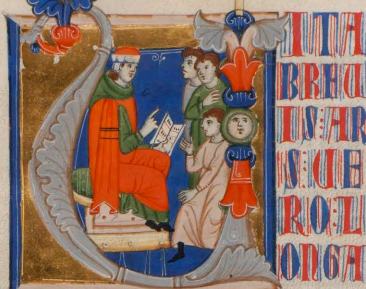 UITA
BREU
IS:AR
S:UE
RO:L
ONGA